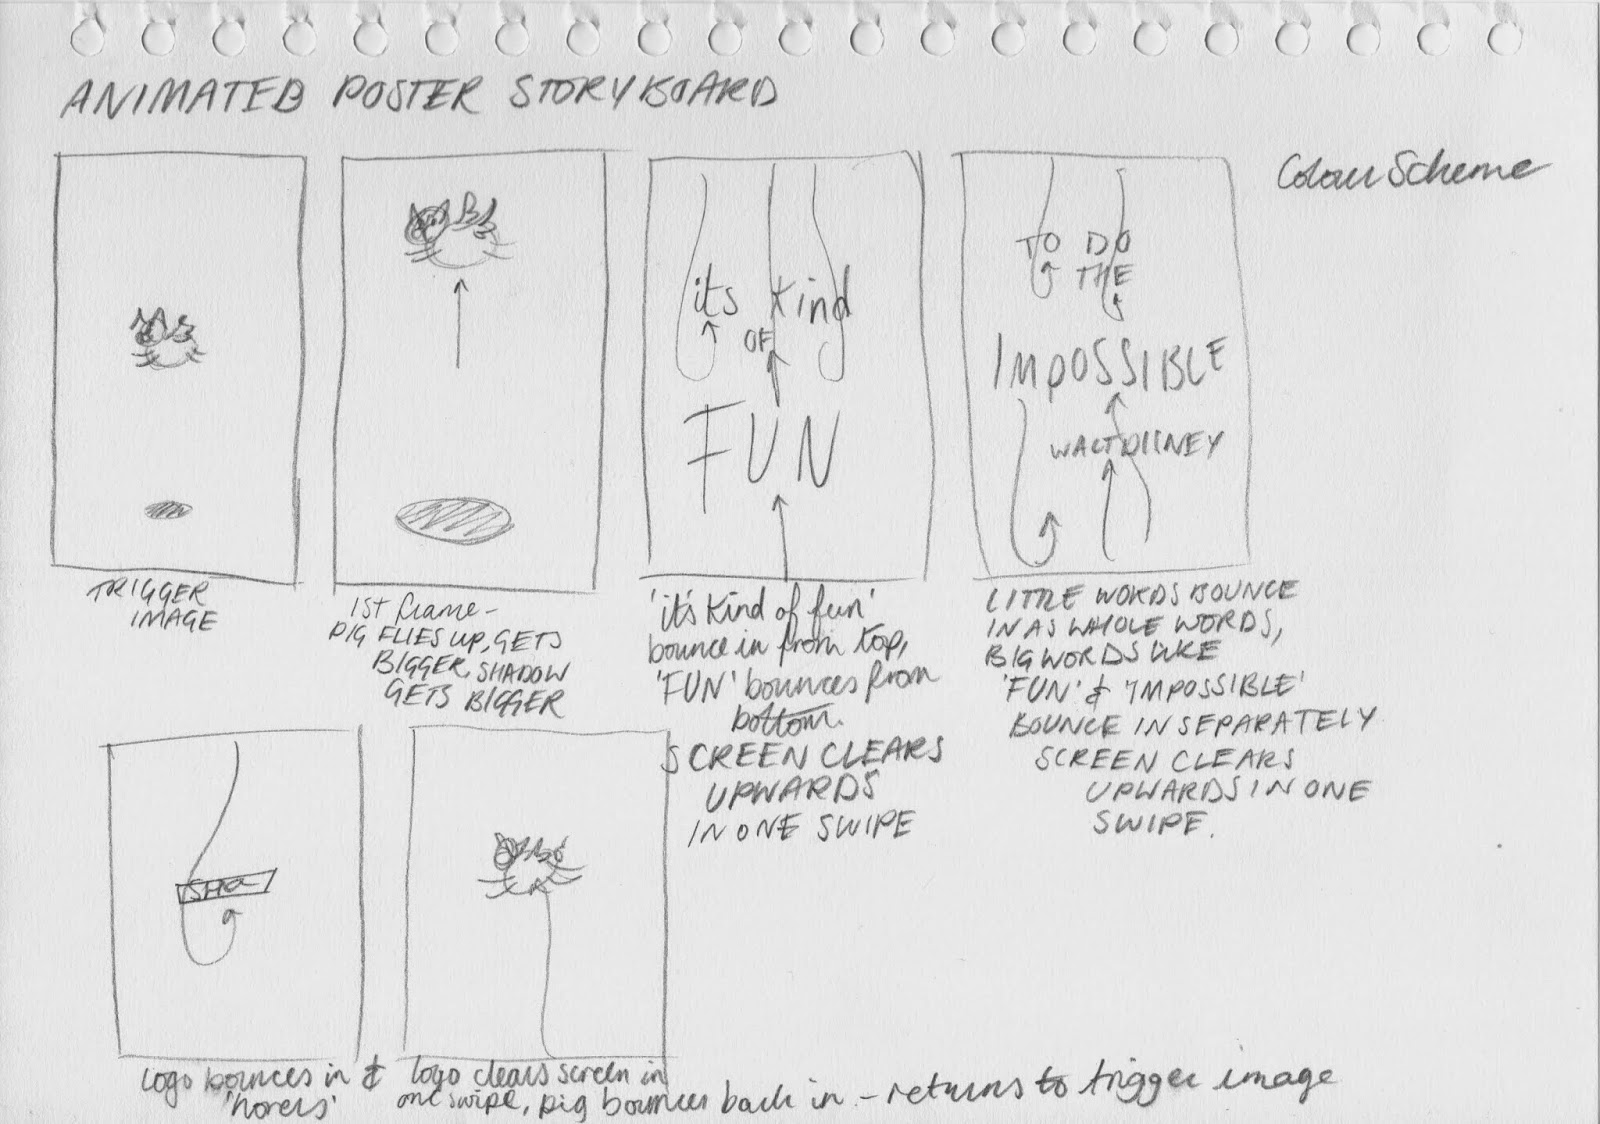 ANIMATED POSTER STORYBOARD
Colour Scheme
its kind
OF
FUN
TO DO
THE
IMPOSSIBLE
WALT DISNEY
TRIGGER
IMAGE
1ST frame -
PIG FLIES UP, GETS
BIGGER, SHADOW
GETS BIGGER
'it's kind of fun'
bounce in from top,
'FUN' bounces from
bottom.
SCREEN CLEARS
UPWARDS
IN ONE SWIPE
LITTLE WORDS BOUNCE
IN AS WHOLE WORDS,
BIG WORDS LIKE
'FUN' & 'IMPOSSIBLE'
BOUNCE IN SEPARATELY
SCREEN CLEARS
UPWARDS IN ONE
SWIPE.
logo bounces in &
'hovers'
logo clears screen in
one swipe, pig bounces back in - returns to trigger image